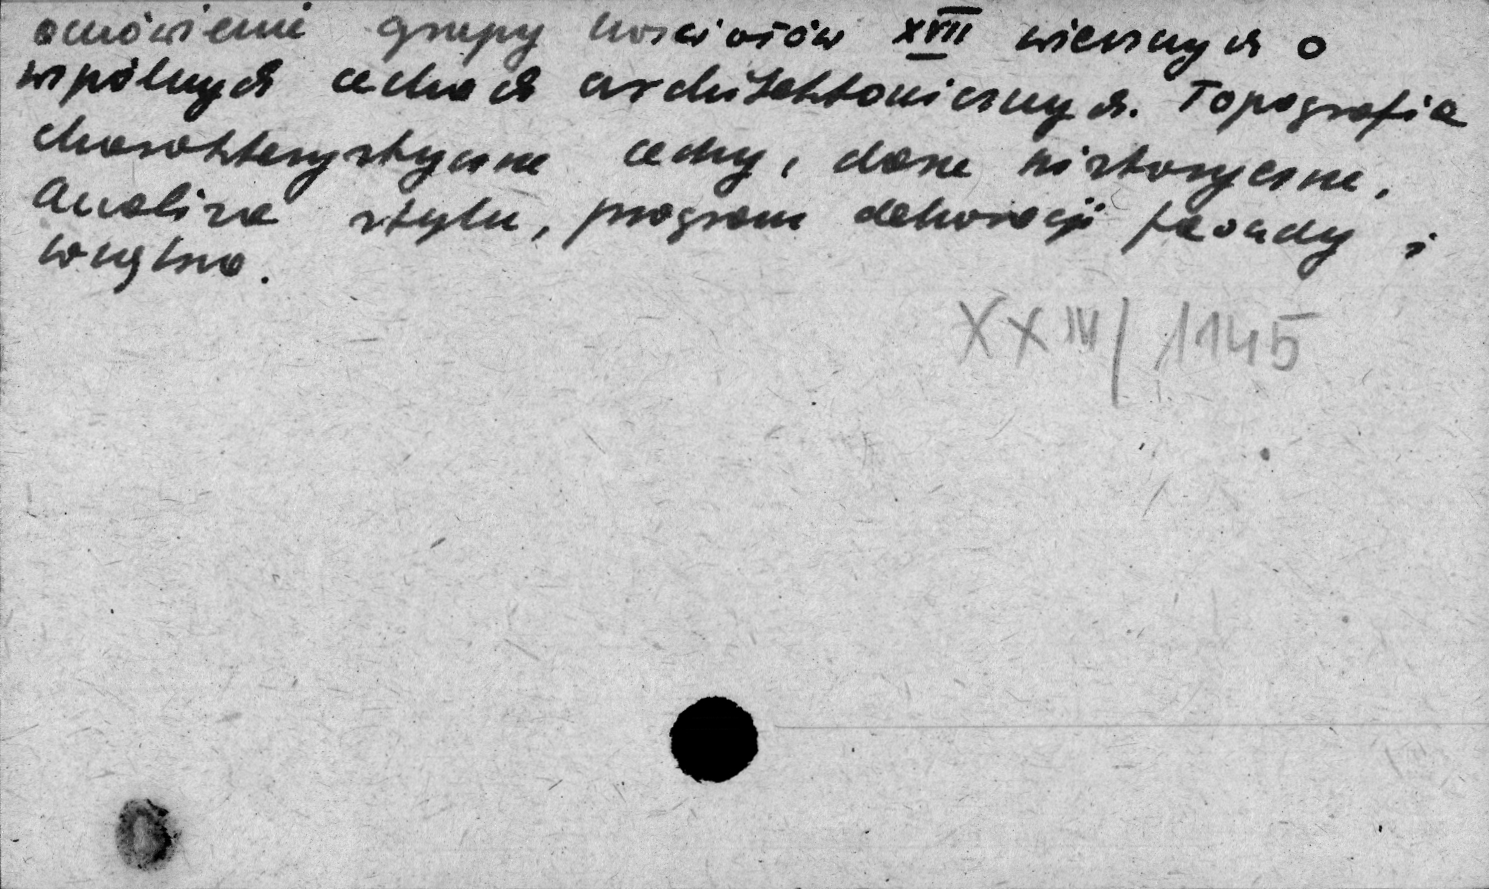 omówienie grupy kościołów XVII wiecznych o
wspólnych cechach architektonicznych. Topografia
charakterystyczne cechy, dane historyczne,
Analiza stylu, program dekoracji fasady i
wnętrza.
XXIV/1145